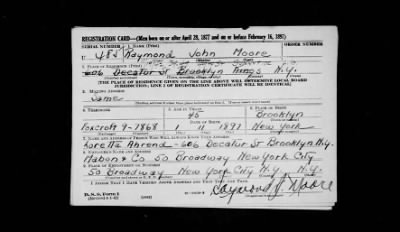 REGISTRATION CARD—(Men born on or after April 28, 1877 and on or before February 16, 1897)
SERIAL NUMBER 1. NAME (Print) ORDER NUMBER
U 482 Raymond John Moore
2. PLACE OF RESIDENCE (Print)
606 Decatur St Brooklyn Kings N.Y.
[THE PLACE OF RESIDENCE GIVEN ON THE LINE ABOVE WILL DETERMINE LOCAL BOARD
JURISDICTION; LINE 2 OF REGISTRATION CERTIFICATE WILL BE IDENTICAL]
3. MAILING ADDRESS
Same
4. TELEPHONE 5. AGE IN YEARS 6. PLACE OF BIRTH
45 Brooklyn
DATE OF BIRTH
Foxcroft 9-7868 11 1897 New York
7. NAME AND ADDRESS OF PERSON WHO WILL ALWAYS KNOW YOUR ADDRESS
Loretta Ahrend - 606 Decatur St Brooklyn N.Y.
8. EMPLOYER'S NAME AND ADDRESS
Mabon & Co 50 Broadway New York City
9. PLACE OF EMPLOYMENT OR BUSINESS
50 Broadway New York City N.Y. N.Y.
I AFFIRM THAT I HAVE VERIFIED ABOVE ANSWERS AND THAT THEY ARE TRUE.
D. S. S. Form 1
Raymond J. Moore